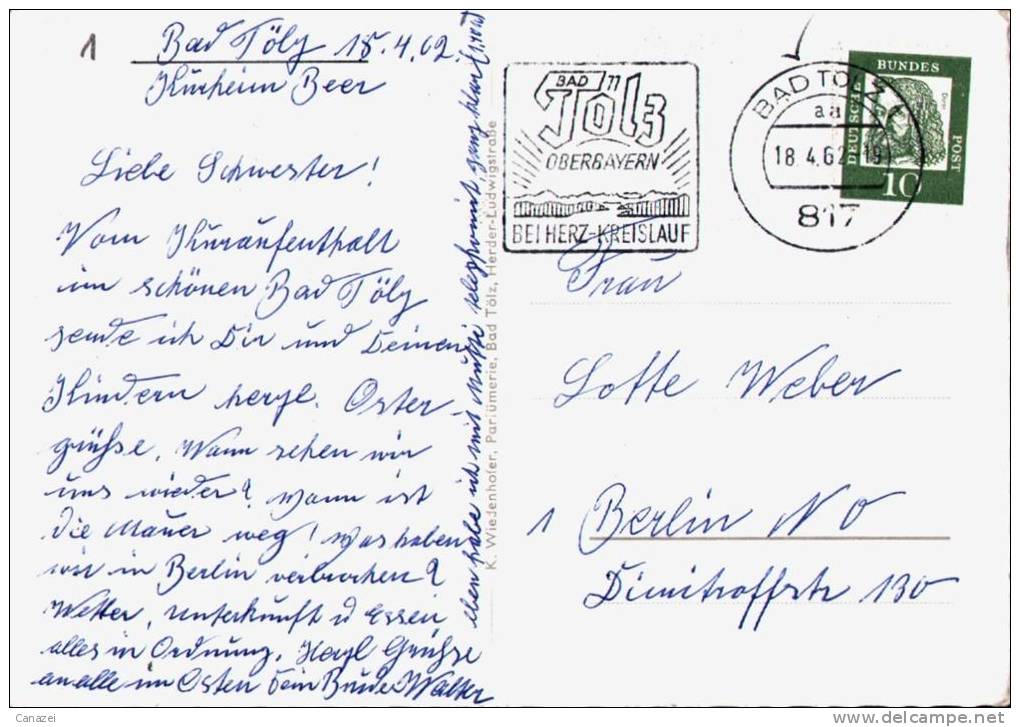 1
Bad Tölz 18.4.62
Kurheim Beer
Liebe Schwester!
Vom Kuraufenthalt
im schönen Bad Tölz
sende ich Dir und Deinen
Kindern herzl. Oster
grüße. Wann sehen wir
uns wieder? Wann ist
die Mauer weg! Was haben
wir in Berlin verbrochen?
Wetter, Unterkunft u Essen
alles in Ordnung. Herzl Grüße
an alle im Osten Dein Bruder Walter
eben habe ich mit Mutti telephoniert, ganz klar
K. Wiedenhofer, Parfümerie, Bad Tölz, Herder-Ludwigstraße
BAD
Tölz
OBERBAYERN
BEI HERZ-KREISLAUF
BAD TÖLZ 1
aa
18.4.62-19
817
DEUTSCHE
BUNDES
POST
Dürer
10
Frau
Lotte Weber
1 Berlin NO
Dimitroffstr 130
Canazei
www.delcampe.net